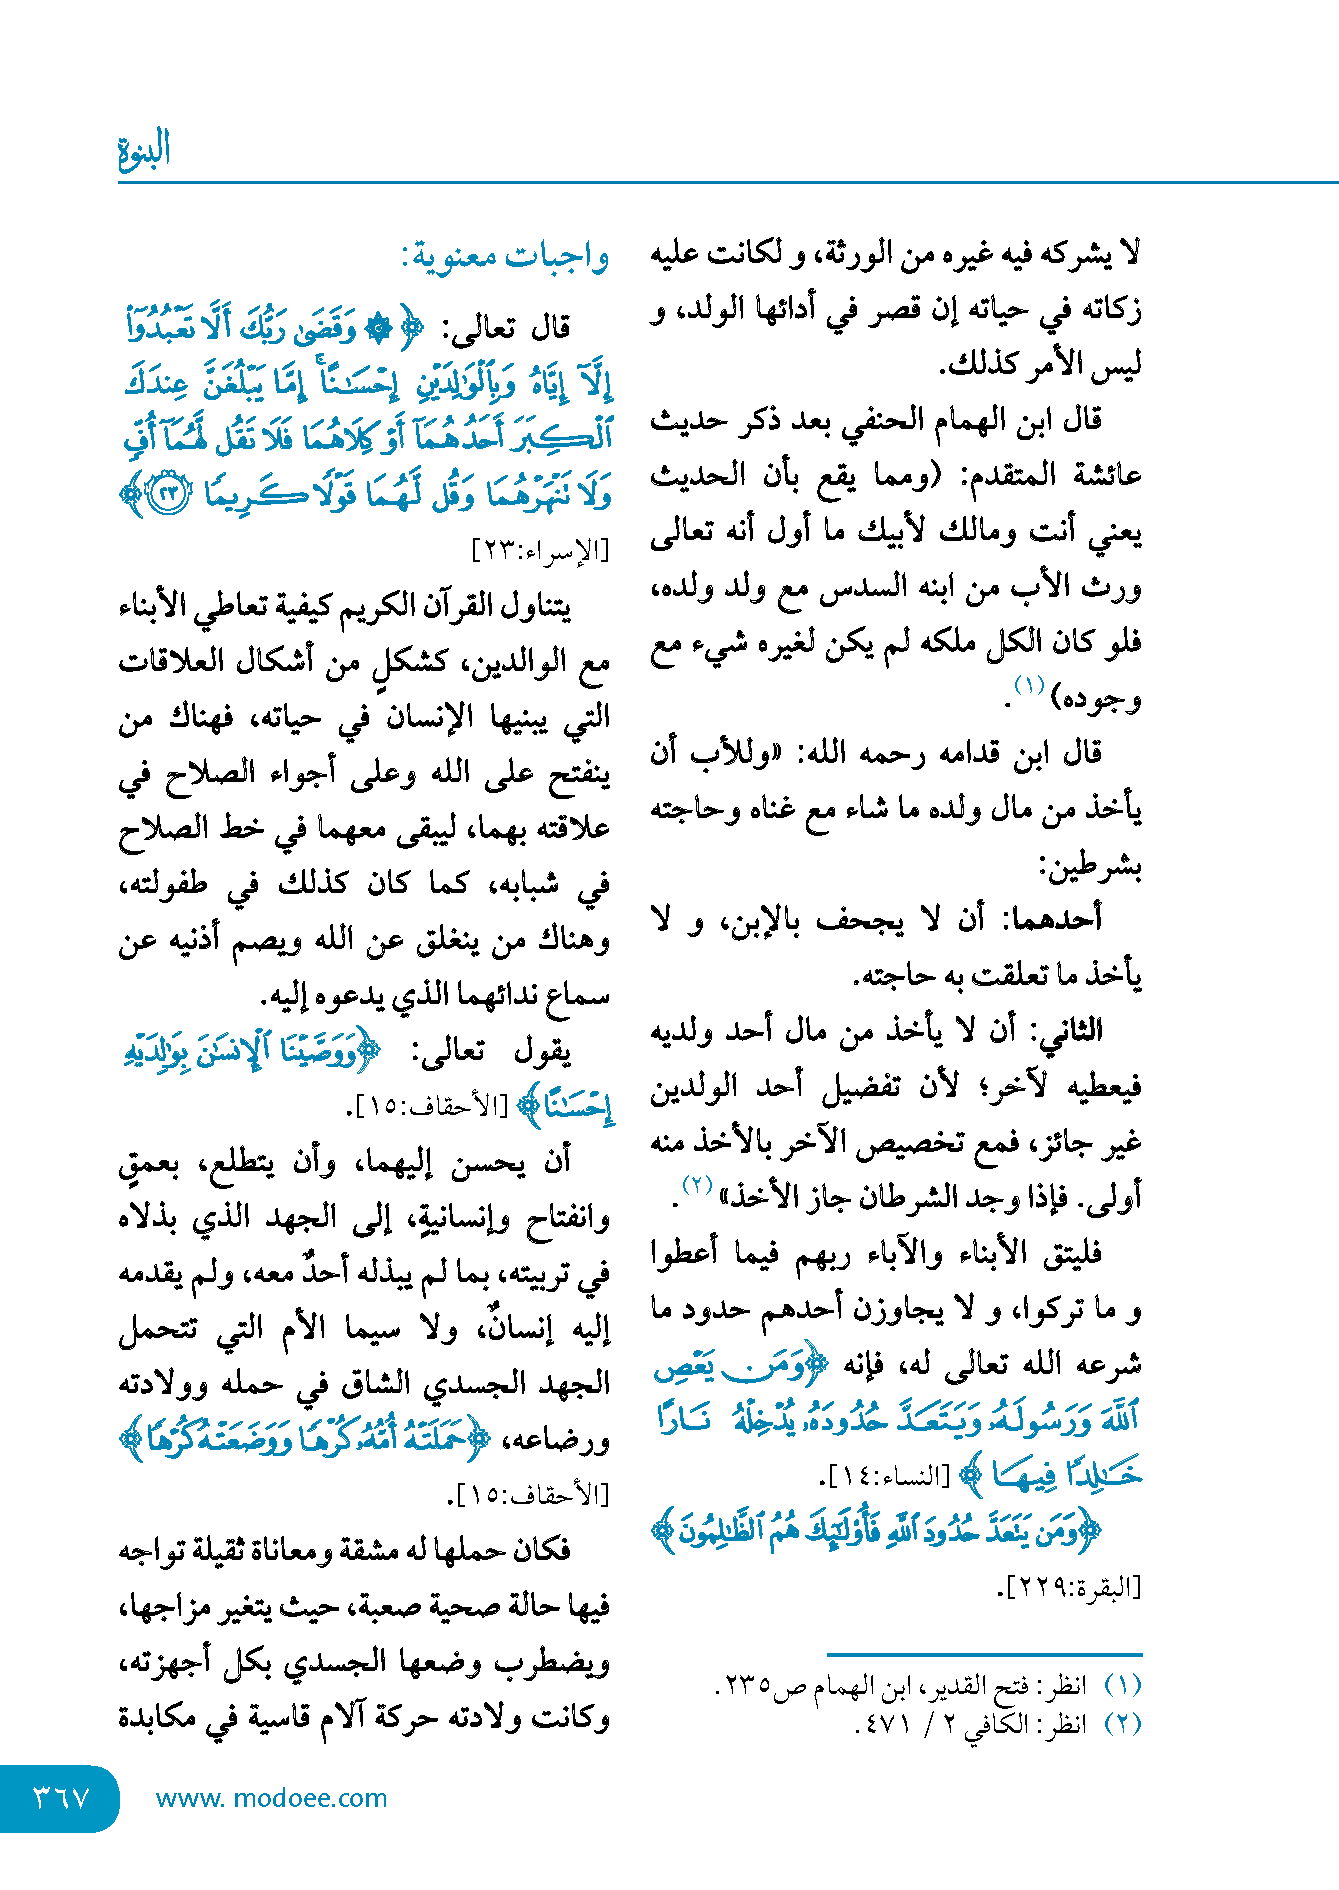 البنوة
لا يشركه فيه غيره من الورثة، و لكانت عليه
زكاته في حياته إن قصر في أدائها الولد، و
ليس الأمر كذلك.
قال ابن الهمام الحنفي بعد ذكر حديث
عائشة المتقدم: (ومما يقع بأن الحديث
يعني أنت ومالك لأبيك ما أول أنه تعالى
ورث الأب من ابنه السدس مع ولد ولده،
فلو كان الكل ملكه لم يكن لغيره شيء مع
وجوده)(١).
قال ابن قدامه رحمه الله: «وللأب أن
يأخذ من مال ولده ما شاء مع غناه وحاجته
بشرطين:
أحدهما: أن لا يجحف بالإبن، و لا
يأخذ ما تعلقت به حاجته.
الثاني: أن لا يأخذ من مال أحد ولديه
فيعطيه لآخر؛ لأن تفضيل أحد الولدين
غير جائز، فمع تخصيص الآخر بالأخذ منه
أولى. فإذا وجد الشرطان جاز الأخذ»(٢).
فليتق الأبناء والآباء ربهم فيما أعطوا
و ما تركوا، و لا يجاوزن أحدهم حدود ما
شرعه الله تعالى له، فإنه ﴿وَمَن يَعْصِ
ٱللَّهَ وَرَسُولَهُۥ وَيَتَعَدَّ حُدُودَهُۥ يُدْخِلْهُ نَارًا
خَـٰلِدًا فِيهَا ﴾ [النساء:١٤].
﴿وَمَن يَتَعَدَّ حُدُودَ ٱللَّهِ فَأُو۟لَـٰٓئِكَ هُمُ ٱلظَّـٰلِمُونَ ﴾
[البقرة:٢٢٩].
(١) انظر: فتح القدير، ابن الهمام ص٢٣٥.
(٢) انظر: الكافي ٢ / ٤٧١.
واجبات معنوية:
قال تعالى: ﴿ ۞ وَقَضَىٰ رَبُّكَ أَلَّا تَعْبُدُوٓا۟
إِلَّآ إِيَّاهُ وَبِٱلْوَٰلِدَيْنِ إِحْسَـٰنًا ۚ إِمَّا يَبْلُغَنَّ عِندَكَ
ٱلْكِبَرَ أَحَدُهُمَآ أَوْ كِلَاهُمَا فَلَا تَقُل لَّهُمَآ أُفٍّ
وَلَا تَنْهَرْهُمَا وَقُل لَّهُمَا قَوْلًا كَرِيمًا ٢٣﴾
[الإسراء:٢٣]
يتناول القرآن الكريم كيفية تعاطي الأبناء
مع الوالدين، كشكلٍ من أشكال العلاقات
التي يبنيها الإنسان في حياته، فهناك من
ينفتح على الله وعلى أجواء الصلاح في
علاقته بهما، ليبقى معهما في خط الصلاح
في شبابه، كما كان كذلك في طفولته،
وهناك من ينغلق عن الله ويصم أذنيه عن
سماع ندائهما الذي يدعوه إليه.
يقول تعالى: ﴿وَوَصَّيْنَا ٱلْإِنسَـٰنَ بِوَٰلِدَيْهِ
إِحْسَـٰنًا ﴾ [الأحقاف:١٥].
أن يحسن إليهما، وأن يتطلع، بعمقٍ
وانفتاح وإنسانيةٍ، إلى الجهد الذي بذلاه
في تربيته، بما لم يبذله أحدٌ معه، ولم يقدمه
إليه إنسانٌ، ولا سيما الأم التي تتحمل
الجهد الجسدي الشاق في حمله وولادته
ورضاعه، ﴿حَمَلَتْهُ أُمُّهُۥ كُرْهًا وَوَضَعَتْهُ كُرْهًا ﴾
[الأحقاف:١٥].
فكان حملها له مشقة ومعاناة ثقيلة تواجه
فيها حالة صحية صعبة، حيث يتغير مزاجها،
ويضطرب وضعها الجسدي بكل أجهزته،
وكانت ولادته حركة آلام قاسية في مكابدة
٣٦٧
www. modoee.com